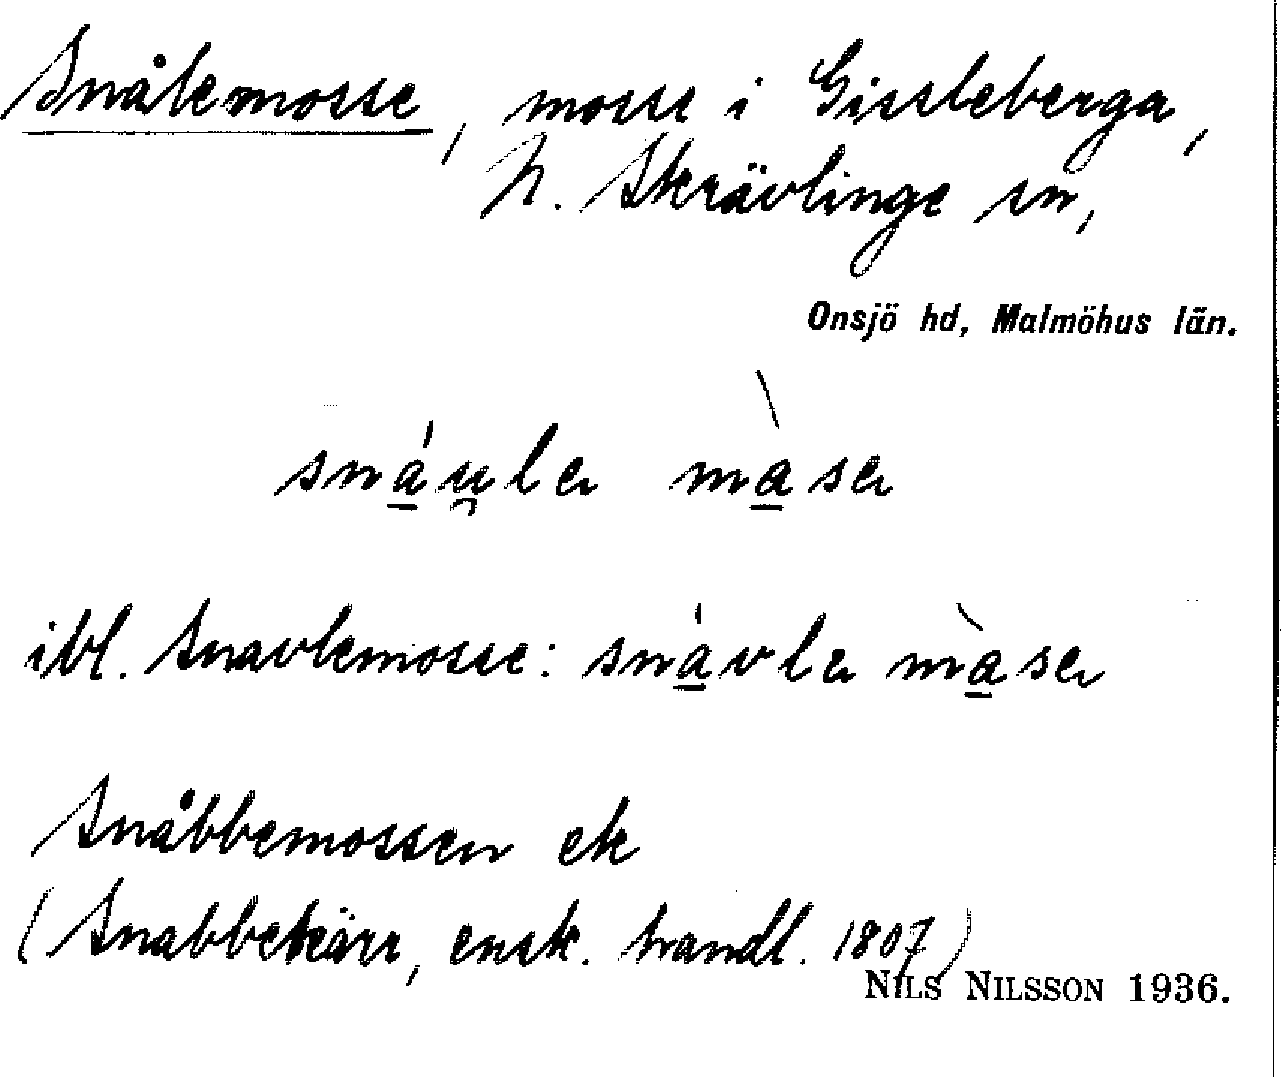 Snålemosse, mosse i Gissleberga,
N. Skrävlinge sn,
Onsjö hd, Malmöhus län.
snáu̯lə màsə
ibl. Snavlemosse: snávlə màsə
Snåbbemossen ek
(Snabbekärr, ensk. handl. 1807)
NILS NILSSON 1936.